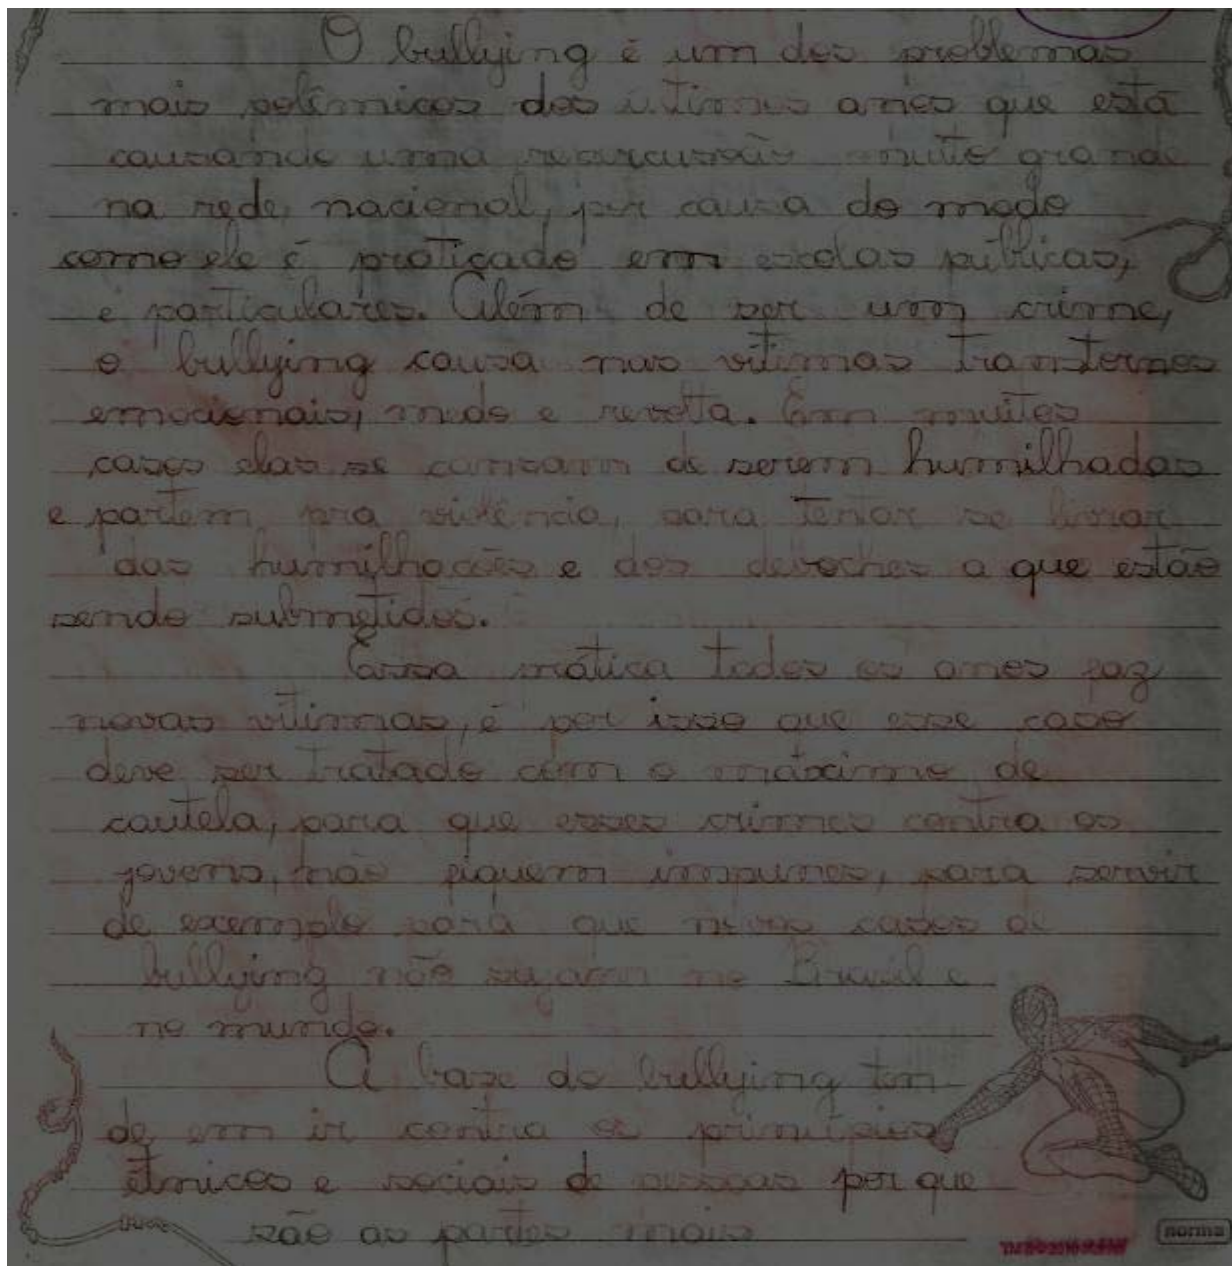 O bullying é um dos problemas
mais polêmicos dos últimos anos que está
causando uma repercussão muito grande
na rede nacional, por causa do modo
como ele é praticado em escolas públicas,
e particulares. Além de ser um crime,
o bullying causa nas vítimas transtornos
emocionais, medo e revolta. Em muitos
casos elas se cansam de serem humilhadas
e partem pra violência, para tentar se livrar
das humilhações e dos deboches a que estão
sendo submetidos.
Essa prática todos os anos faz
novas vítimas, é por isso que esse caso
deve ser tratado com o máximo de
cautela, para que esses crimes contra os
jovens, não fiquem impunes, para servir
de exemplo para que novos casos de
bullying não sejam no Brasil e
no mundo.
A base do bullying tem
de em ir contra os princípios
étnicos e sociais de pessoas por que
são as partes mais
norma